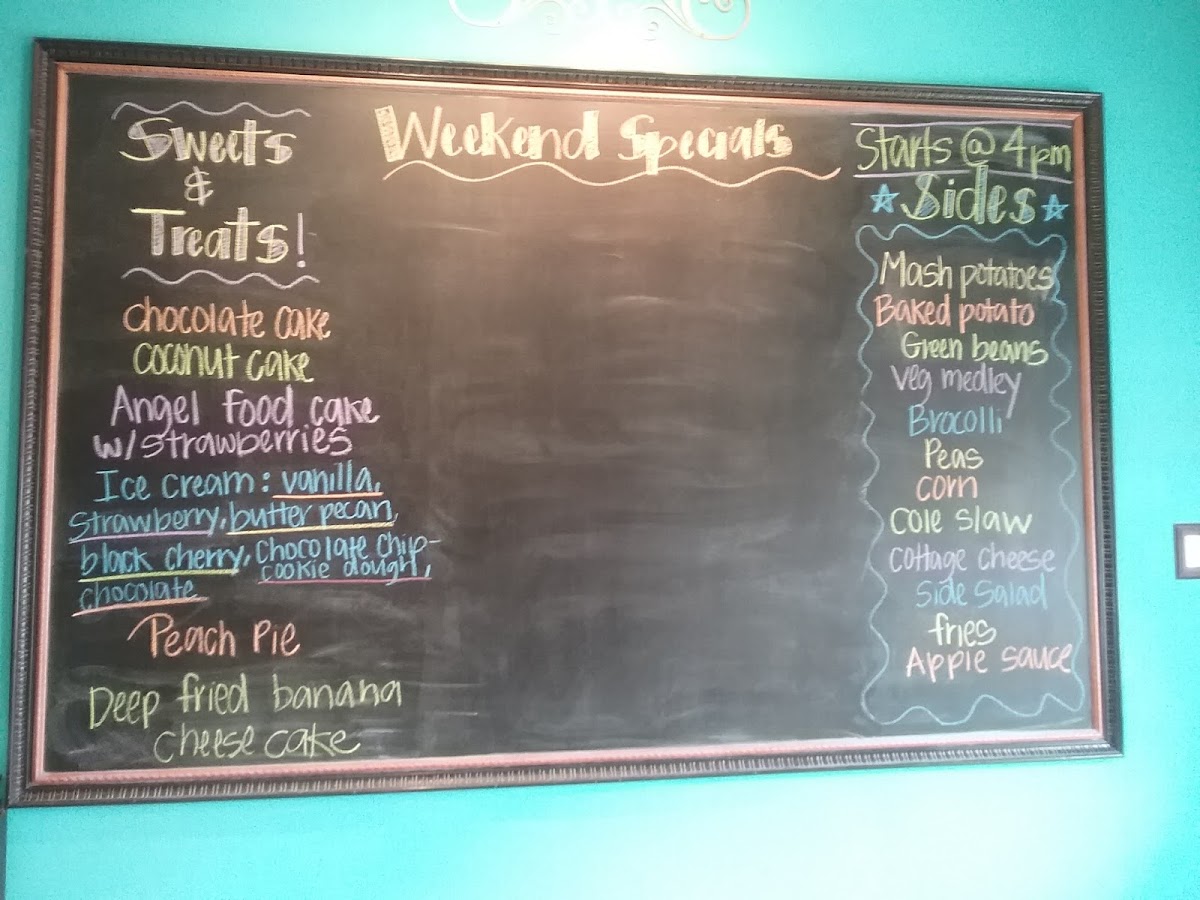 Sweets
&
Treats!
chocolate cake
coconut cake
Angel food cake
w/strawberries
Ice cream: vanilla,
strawberry, butter pecan,
black cherry, chocolate chip-
cookie dough,
chocolate
Peach Pie
Deep fried banana
cheese cake
Weekend Specials
Starts @ 4pm
Sides
Mash potatoes
Baked potato
Green beans
veg medley
Brocolli
Peas
corn
cole slaw
cottage cheese
side salad
fries
Apple sauce